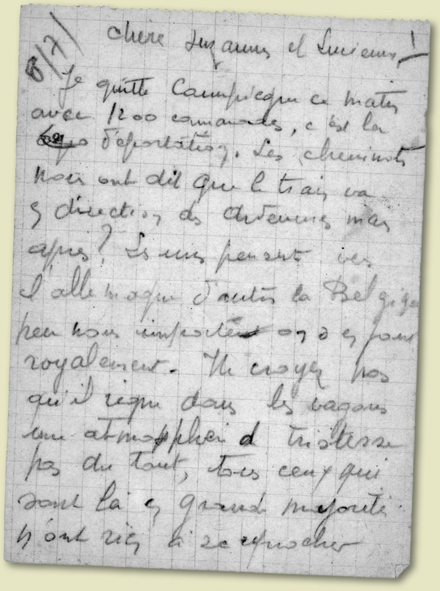 6/7/
chère Suzanne et Lucienne !
Je quitte Compiègne ce matin
avec 1200 camarades, c'est la
déportation. Les cheminots
nous ont dit que le train va
en direction des Ardennes mais
après ? Les uns pensent vers
l'allemagne d'autres la Belgique
peu nous importe on s'en fout
royalement. Ne croyez pas
qu'il règne dans les wagons
une atmosphère d tristesse
pas du tout, tous ceux qui
sont là en grande majorité
n'ont rien à se reprocher